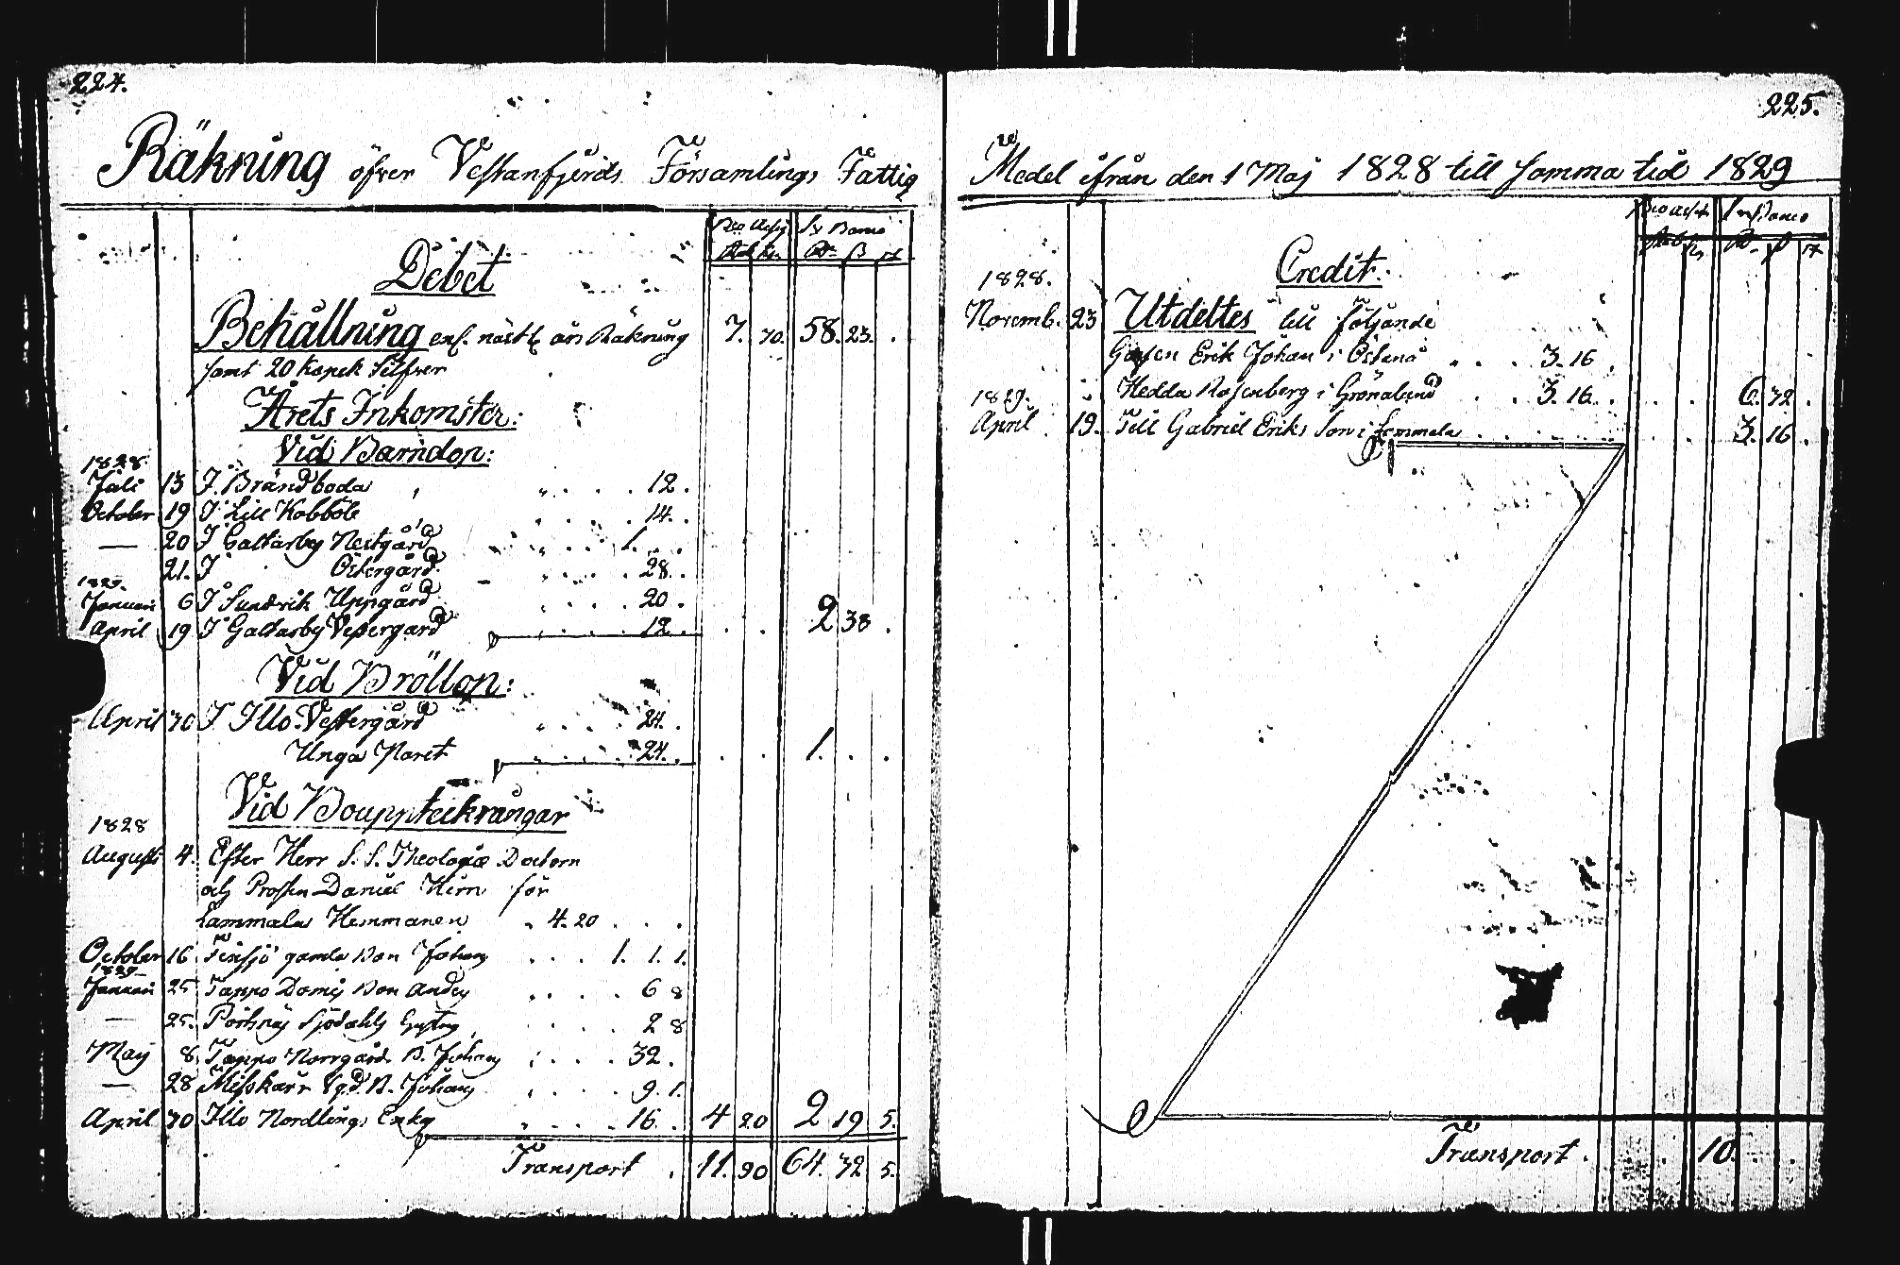 224.
Räkning öfver Vestanfjerds Församlings Fattig
Debet
Behållning enl. näst år Räkning 7. 70. 58. 23.
samt 20 Kopek Silfver
Årets Inkomster:
Vid Barndop:
1828
Juli 13 I Brändboda 12.
October 19 I Lill Kobböle 14.
— 20 I Galtarby Nestgård 1.
21. I Östergård 28.
1829.
Januari 6 I Sundvik Uppgård 20.
April 19 I Galtarby Vestergård 12. 2 38.
Vid Bröllop:
April 30 I Illo Vestergård 24.
Unga Paret 24. 1.
Vid Bouppteckningar
1828
Augusti 4. Efter Herr S. S. Theologiæ Doctorn
och Prosten Daniel Hirn för
Lammala Hemmanen 4. 20
October 16 gamla Bon Johan 1. 1. 1.
1829
Januari 25 Tappo Bon 6 8
— 25. Sjödahls 2 8
Maij 8 Tappo Norrgård B. Johan 32.
— 28 Misskärr B. Johan 9. 1.
April 30 Illo Nordlings Enka 16. 4 20 2 19 5.
Transport 11. 90 64. 32 5.
225.
Medel ifrån den 1 Maj 1828 till samma tid 1829
Credit.
1828.
Novemb. 23 Utdeltes till följande
Gossen Erik Johan i 3. 16.
Hedda Rosenberg i Grönalund 3. 16. 6. 32.
1829.
April 19. Till Gabriel Eriks Son i Lammala 3. 16.
Transport. 10.